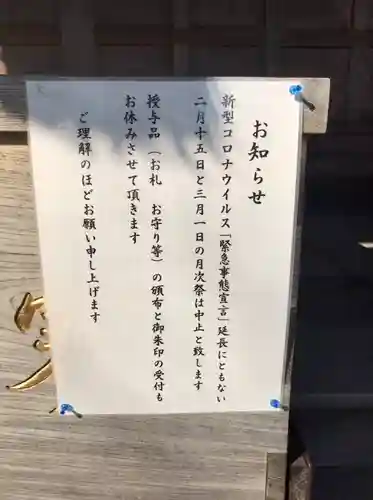 お知らせ
新型コロナウイルス「緊急事態宣言」延長にともない
二月十五日と三月一日の月次祭は中止と致します
授与品（お札　お守り等）の頒布と御朱印の受付も
お休みさせて頂きます
ご理解のほどお願い申し上げます